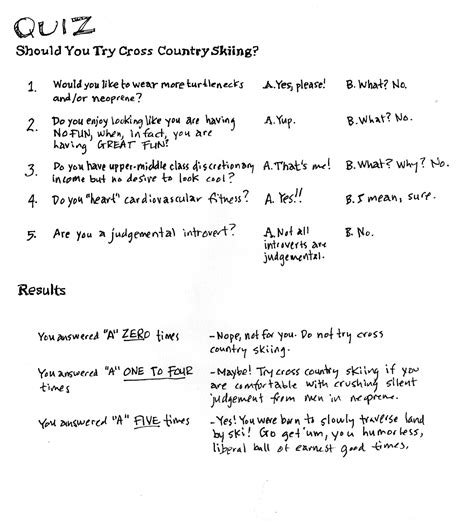 QUIZ
Should You Try Cross Country Skiing?
1. Would you like to wear more turtlenecks and/or neoprene? A. Yes, please! B. What? No.
2. Do you enjoy looking like you are having NO FUN, when, in fact, you are having GREAT FUN? A. Yup. B. What? No.
3. Do you have upper-middle class discretionary income but no desire to look cool? A. That's me! B. What? Why? No.
4. Do you "heart" cardiovascular fitness? A. Yes!! B. I mean, sure.
5. Are you a judgemental introvert? A. Not all introverts are judgemental. B. No.
Results
You answered "A" ZERO times - Nope, not for you. Do not try cross country skiing.
You answered "A" ONE TO FOUR times - Maybe! Try cross country skiing if you are comfortable with crushing silent judgement from men in neoprene.
You answered "A" FIVE times - Yes! You were born to slowly traverse land by ski! Go get'um, you humorless, liberal ball of earnest good times.